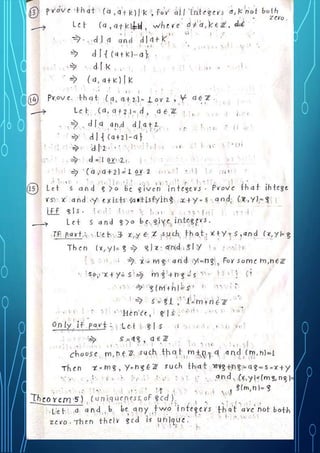 (13) prove that (a,a+k)|k, for all integers a,k not both zero.
→ Let (a,a+k)=d, where a,k∈ℤ,
⇒ d|a and d|a+k
⇒ d|{(a+k)-a}
⇒ d|k
⇒ (a,a+k)|k
(14) Prove that (a,a+2)=1 or 2, ∀ a∈ℤ
→ Let (a,a+2)=d, a∈ℤ
⇒ d|a and d|a+2
⇒ d|{(a+2)-a}
⇒ d|2
⇒ d=1 or 2
⇒ (a,a+2)=1 or 2
(15) Let s and g>0 be given integers. Prove that intege
rs x and y exists satisfying x+y=s and (x,y)=g
IFF g|s.
→ Let s and g>0 be give integers.
IF part: Let ∃ x,y∈ℤ such that x+y=s, and (x,y)=g
Then (x,y)=g ⇒ g|x and g|y
⇒ x=mg and y=ng, for some m,n∈ℤ
so, x+y=s ⇒ mg+ng=s
⇒ g(m+n)=s
⇒ s=gl, l=m+n∈ℤ
Hence, g|s.
Only if part: Let g|s
⇒ s=ag, a∈ℤ
choose m,n∈ℤ such that m+n=a and (m,n)=1
Then x=mg, y=ng∈ℤ such that mg+ng=ag=s=x+y
and, (x,y)=(mg,ng)=
g(m,n)=g
Theorem 5) (uniqueness of gcd)
Let a and b be any two integers that are not both
zero. Then their gcd is unique.